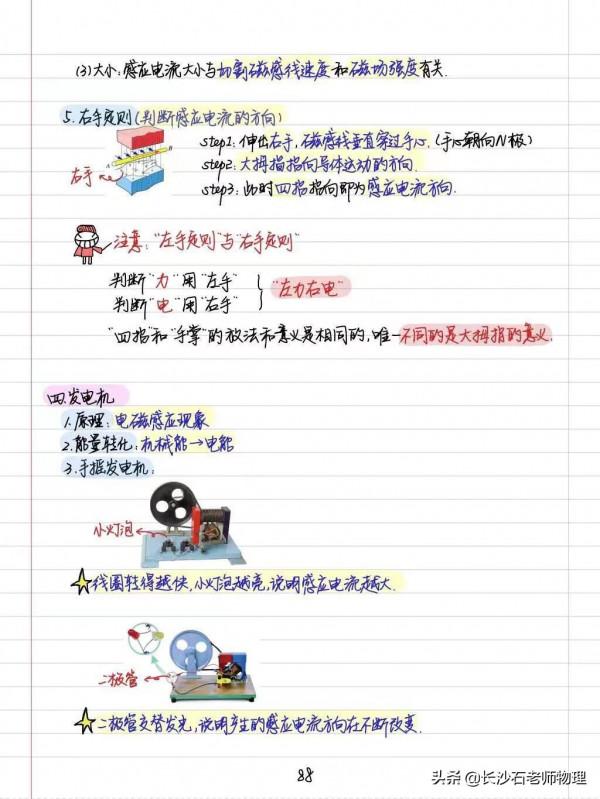 (3)大小:感应电流大小与切割磁感线速度和磁场强度有关.
5.右手定则(判断感应电流的方向)
step1:伸出右手,磁感线垂直穿过手心.(手心朝向N极)
step2:大拇指指向导体运动的方向.
右手
step3:此时四指指向即为感应电流方向.
注意:"左手定则"与"右手定则"
判断"力"用"左手"
判断"电"用"右手"
"左力右电"
"四指"和"手掌"的放法和意义是相同的,唯一不同的是大拇指的意义.
四.发电机
1.原理:电磁感应现象
2.能量转化:机械能→电能
3.手摇发电机:
小灯泡
线圈转得越快,小灯泡越亮,说明感应电流越大.
二极管
二极管交替发光,说明产生的感应电流方向在不断改变.
88
头条@长沙石老师物理